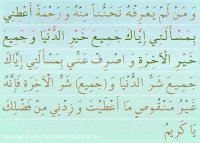 وَ مَنْ لَمْ يَعْرِفْهُ تَحَنُّنًا مِنْهُ وَ رَحْمَةً أَعْطِنِي
بِمَسْأَلَتِي إِيَّاكَ جَمِيعَ خَيْرِ الدُّنْيَا وَ جَمِيعَ
خَيْرِ الْآخِرَةِ وَ اصْرِفْ عَنِّي بِمَسْأَلَتِي إِيَّاكَ
جَمِيعَ شَرِّ الدُّنْيَا وَ (جَمِيعَ) شَرِّ الْآخِرَةِ فَإِنَّهُ
غَيْرُ مَنْقُوصٍ مَا أَعْطَيْتَ وَ زِدْنِي مِنْ فَضْلِكَ
يَا كَرِيمُ